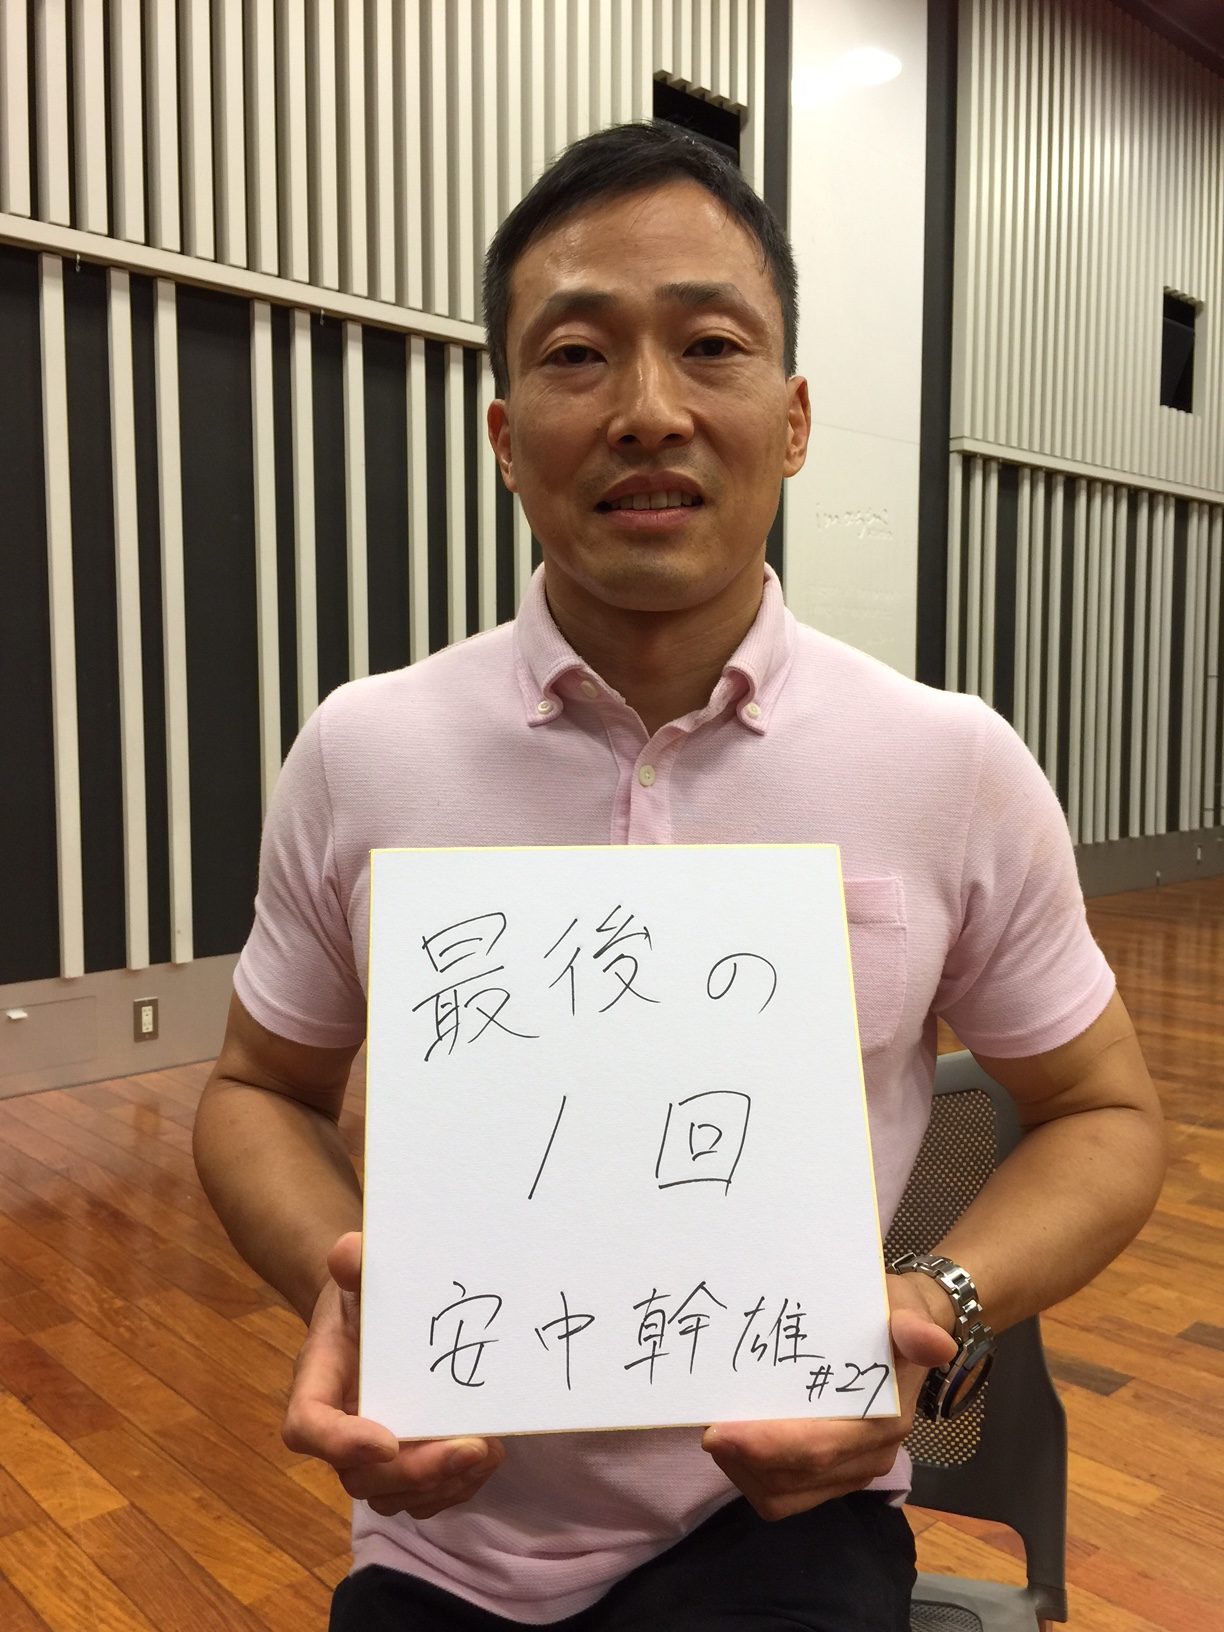 最後の
1回
安中幹雄
#27